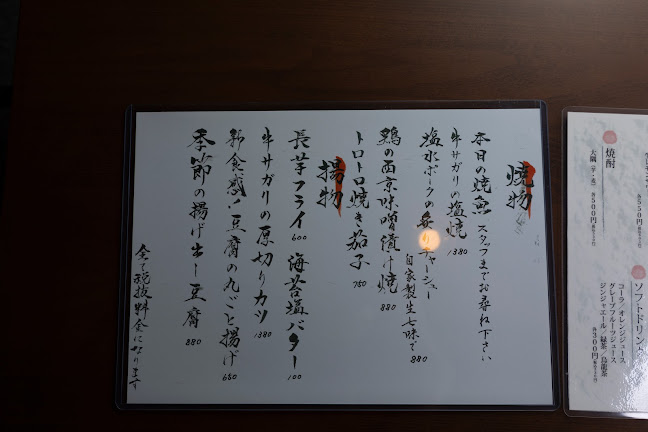 焼物
本日の焼魚 スタッフまでお尋ね下さい
牛サガリの塩焼 1380
塩水ポークの炙りチャーシュー
自家製生七味で 880
鶏の西京味噌漬け焼 880
トロトロ焼き茄子 750
揚物
長芋フライ 600 海苔塩バター 100
牛サガリの厚切りカツ 1380
新食感!豆腐の丸ごと揚げ 650
季節の揚げ出し豆腐 880
全て税抜料金になります
焼酎
大隅(芋・麦)
各500円
各550円
ソフトドリンク
コーラ/オレンジジュース
グレープフルーツジュース
ジンジャエール/緑茶/烏龍茶
各300円